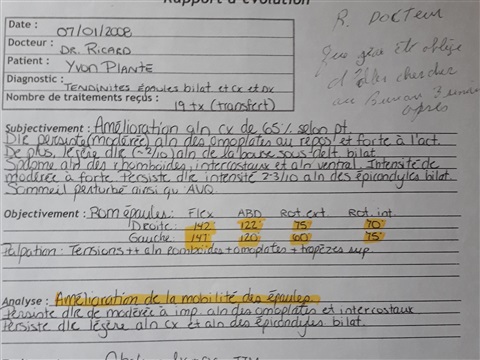 Rapport d'évolution
Date : 07/01/2008
Docteur : DR. RICARD
Patient : YVON PLANTE
Diagnostic : TENDINITES ÉPAULES BILAT ET CX ET DX
Nombre de traitements reçus : 19 tx (transfert)
R. DOCTEUR
Que j'ai été obligé
d'aller chercher
au Bureau 3 
après
Subjectivement : Amélioration aln cx de 65% selon pt.
Dlr persiste (modérée) aln des omoplates au repos et forte à l'act.
De plus, légère dlr (~2/10) aln de la bourse sous-delt bilat.
aln des rhomboïdes, intercostaux et aln ventral. Intensité de
modérée à forte. Persiste dlr intensité 2-3/10 aln des épicondyles bilat.
Sommeil perturbé ainsi qu'AVQ.
Objectivement : Rom épaules: Flex ABD Rot. ext. Rot. int.
Droite: 142° 122° 75° 70°
Gauche: 147° 120° 60° 75°
Palpation : Tensions ++ aln romboïdes + omoplates + trapèzes sup.
Analyse : Amélioration de la mobilité des épaules.
Persiste dlr de modérée à imp. aln des omoplates et intercostaux
Persiste dlr légère aln cx et aln des épicondyles bilat.